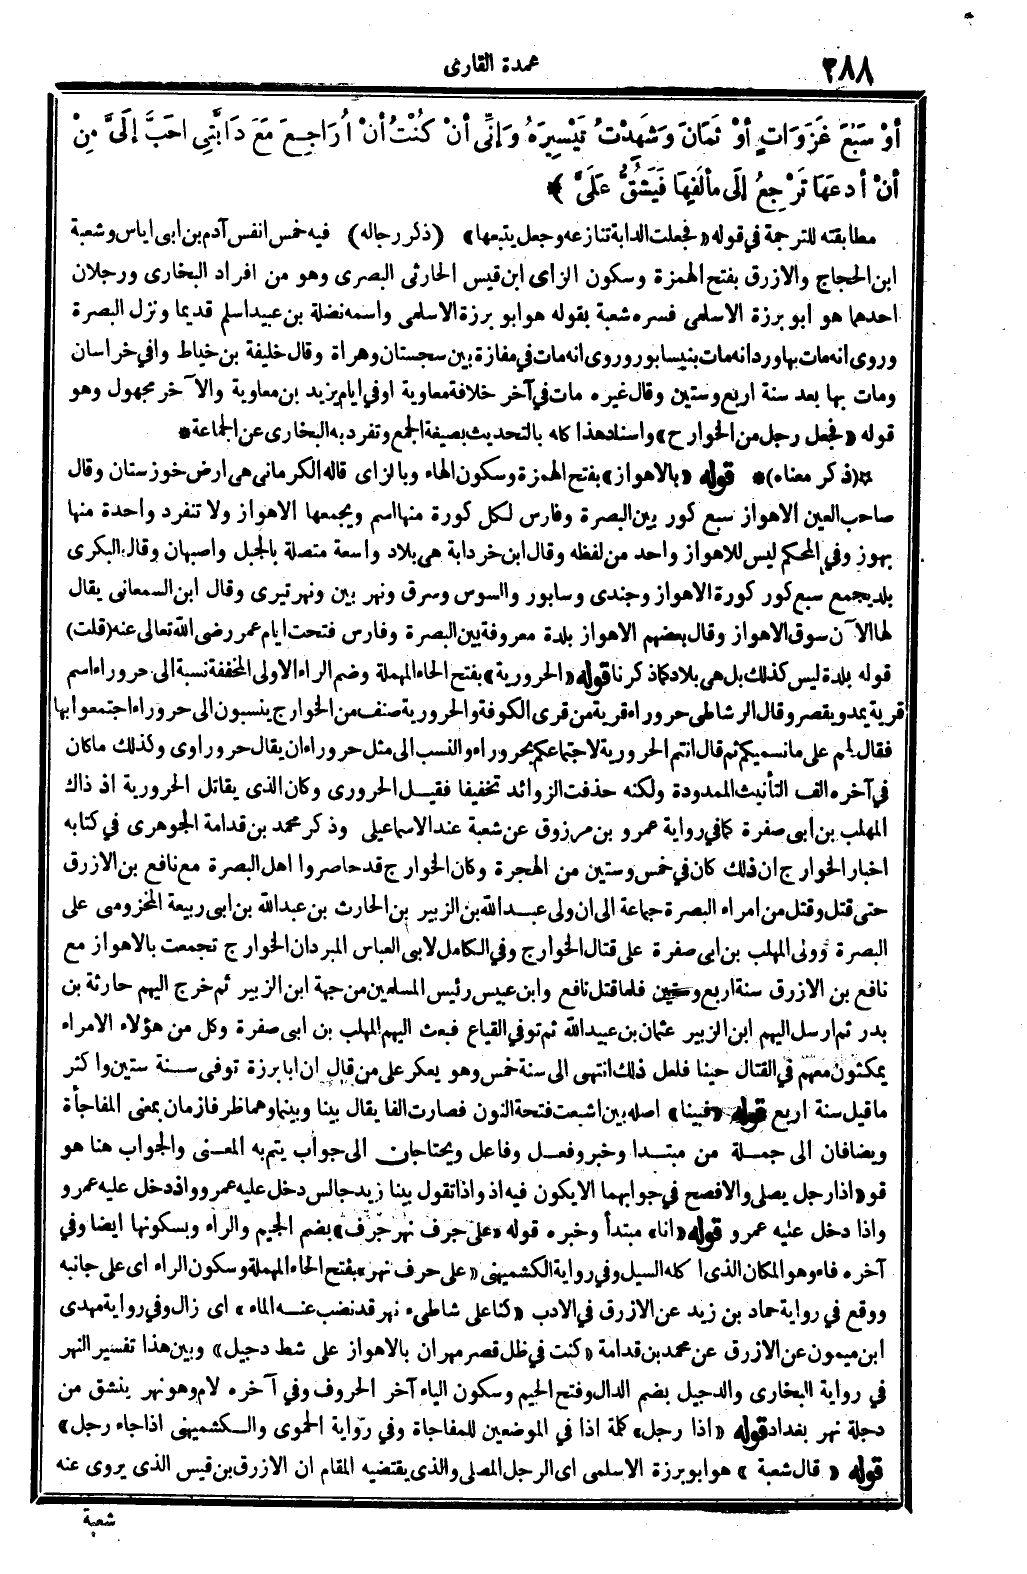 ٢٨٨
عمدة القارى
أَوْ سَبْعَ غَزَوَاتٍ أَوْ ثَمَانَ وَشَهِدْتُ تَيْسِيرَهُ وَإِنِّى أَنْ كُنْتُ أَنْ أُرَاجِعَ مَعَ دَابَّتِى احَبَّ إلَىَّ مِنْ
أَنْ أدعَهَا تَرْجِعُ إلَى مألَفِهَا فَيَشُقُّ عَلَىَّ ﴾
مطابقته للترجمة فى قوله «فجعلت الدابة تنازعه وجعل يتبعها» (ذكر رجاله) فيه خمس انفس آدم بن ابى اياس وشعبة
ابن الحجاج والازرق بفتح الهمزة وسكون الزاى ابن قيس الحارثى البصرى وهو من افراد البخارى ورجلان
احدهما هو ابو برزة الاسلمى فسره شعبة بقوله هو ابو برزة الاسلمى واسمه نضلة بن عبيد اسلم قديما ونزل البصرة
وروى انه مات بها ورد انه مات بنيسابور وروى انه مات فى مفازة بين سجستان وهراة وقال خليفة بن خياط وافى خراسان
ومات بها بعد سنة اربع وستين وقال غيره مات فى آخر خلافة معاوية او فى ايام يزيد بن معاوية والآخر مجهول وهو
قوله «فجعل رجل من الخوارج» واسناد هذا كله بالتحديث بصيغة الجمع وتفرد به البخارى عن الجماعة *
*(ذكر معناه)* قوله «بالاهواز» بفتح الهمزة وسكون الهاء وبالزاى قاله الكرمانى هى ارض خوزستان وقال
صاحب العين الاهواز سبع كور بين البصرة وفارس لكل كورة منها اسم ويجمعها الاهواز ولا تنفرد واحدة منها
بهوز وفى المحكم ليس للاهواز واحد من لفظه وقال ابن خردابة هى بلاد واسعة متصلة بالجبل واصبهان وقال البكرى
بلد يجمع سبع كور كورة الاهواز وجندى وسابور والسوس وسرق ونهر بين ونهر تيرى وقال ابن السمعانى يقال
لها الآن سوق الاهواز وقال بعضهم الاهواز بلدة معروفة بين البصرة وفارس فتحت ايام عمر رضى الله تعالى عنه (قلت)
قوله بلدة ليس كذلك بل هى بلاد كما ذكرنا قوله «الحرورية» بفتح الحاء المهملة وضم الراء الاولى المخففة نسبة الى حروراء اسم
قرية يمد ويقصر وقال الرشاطى حروراء قرية من قرى الكوفة والحرورية صنف من الخوارج ينسبون الى حروراء اجتمعوا بها
فقال لهم على ما نسميكم ثم قال انتم الحرورية لاجتماعكم بحروراء والنسب الى مثل حروراء ان يقال حروراوى وكذلك ما كان
فى آخره الف التأنيث الممدودة ولكنه حذفت الزوائد تخفيفا فقيل الحرورى وكان الذى يقاتل الحرورية اذ ذاك
المهلب بن ابى صفرة كما فى رواية عمرو بن مرزوق عن شعبة عند الاسماعيلى وذكر محمد بن قدامة الجوهرى فى كتابه
اخبار الخوارج ان ذلك كان فى خمس وستين من الهجرة وكان الخوارج قد حاصروا اهل البصرة مع نافع بن الازرق
حتى قتل وقتل من امراء البصرة جماعة الى ان ولى عبد الله بن الزبير بن الحارث بن عبد الله بن ابى ربيعة المخزومى على
البصرة وولى المهلب بن ابى صفرة على قتال الخوارج وفى الكامل لابى العباس المبرد ان الخوارج تجمعت بالاهواز مع
نافع بن الازرق سنة اربع وستين فلما قتل نافع وابن عبيس رئيس المسلمين من جهة ابن الزبير ثم خرج اليهم حارثة بن
بدر ثم ارسل اليهم ابن الزبير عثمان بن عبيد الله ثم توفى القباع فبعث اليهم المهلب بن ابى صفرة وكل من هؤلاء الامراء
يمكثون معهم فى القتال حينا فلعل ذلك انتهى الى سنة خمس وهو يعكر على من قال ان ابا برزة توفى سنة ستين واكثر
ما قيل سنة اربع قوله «فبينا» اصله بين اشبعت فتحة النون فصارت الفا يقال بينا وبينما وهما ظرفا زمان بمعنى المفاجأة
ويضافان الى جملة من مبتدا وخبر وفعل وفاعل ويحتاجان الى جواب يتم به المعنى والجواب هنا هو
قوله اذا رجل يصلى والافصح فى جوابهما الا يكون فيه اذ واذا تقول بينا زيد جالس دخل عليه عمرو واذ دخل عليه عمرو
واذا دخل عليه عمرو قوله «انا» مبتدأ وخبره قوله «على جرف نهر جرف» بضم الجيم والراء وبسكونها ايضا وفى
آخره فاء وهو المكان الذى اكله السيل وفى رواية الكشميهنى «على حرف نهر» بفتح الحاء المهملة وسكون الراء اى على جانبه
ووقع فى رواية حماد بن زيد عن الازرق فى الادب «كنا على شاطىء نهر قد نضب عنه الماء» اى زال وفى رواية مهدى
ابن ميمون عن الازرق عن محمد بن قدامة «كنت فى ظل قصر مهران بالاهواز على شط دجيل» وبين هذا تفسير النهر
فى رواية البخارى والدجيل بضم الدال وفتح الجيم وسكون الياء آخر الحروف وفى آخره لام وهو نهر ينشق من
دجلة نهر بغداد قوله «اذا رجل» كلمة اذا فى الموضعين للمفاجاة وفى رواية الحموى والكشميهنى اذا جاء رجل»
قوله « قال شعبة » هو ابو برزة الاسلمى اى الرجل المصلى والذى يقتضيه المقام ان الازرق بن قيس الذى يروى عنه
شعبة